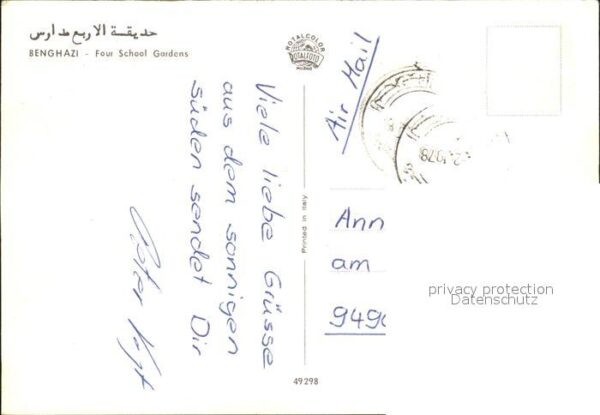 حديقة الاربع مدارس
BENGHAZI - Four School Gardens
ROTALCOLOR
ROTALFOTO
MILANO
Air Mail
Viele liebe Grüsse
aus dem sonnigen
Süden sendet Dir
Printed in Italy
Ann
am
949
privacy protection
Datenschutz
49298